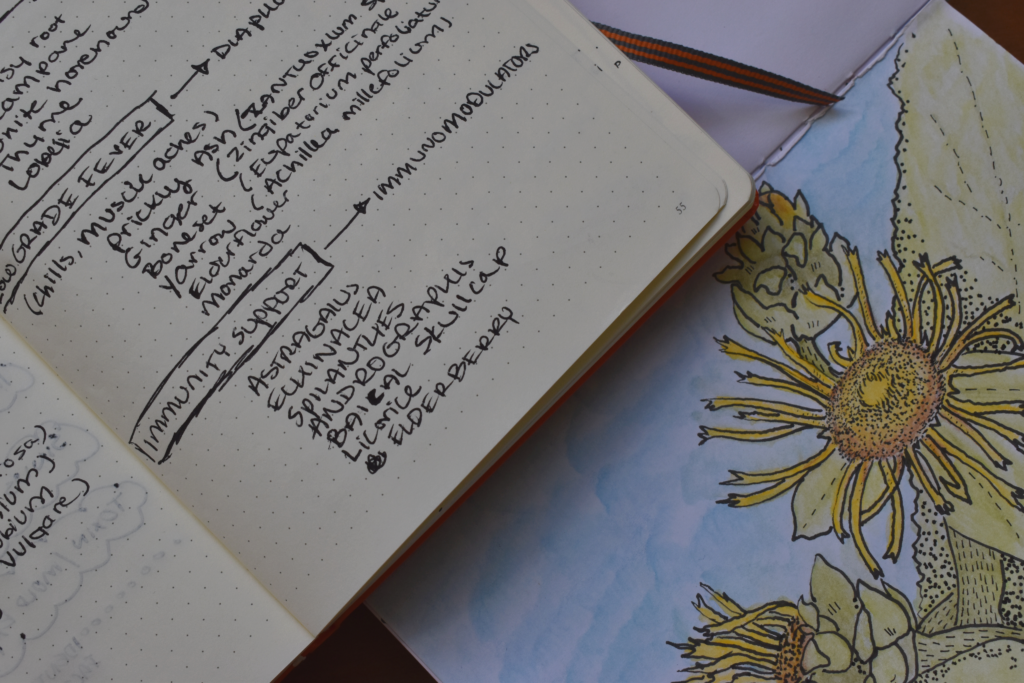 root
Thyme
Lobelia
LOW GRADE FEVER
(Chills, muscle aches)
Prickly Ash
Ginger (Zingiber officinale
Boneset (Eupatorium perfoliatu
Yarrow (Achillea millefolium)
Elderflower
Monarda
IMMUNITY SUPPORT → IMMUNOMODULATORS
ASTRAGALUS
ECHINACEA
SPILANTHES
ANDROGRAPHIS
BAICAL SKULLCAP
Licorice
ELDERBERRY
55
osa)
vulgare)